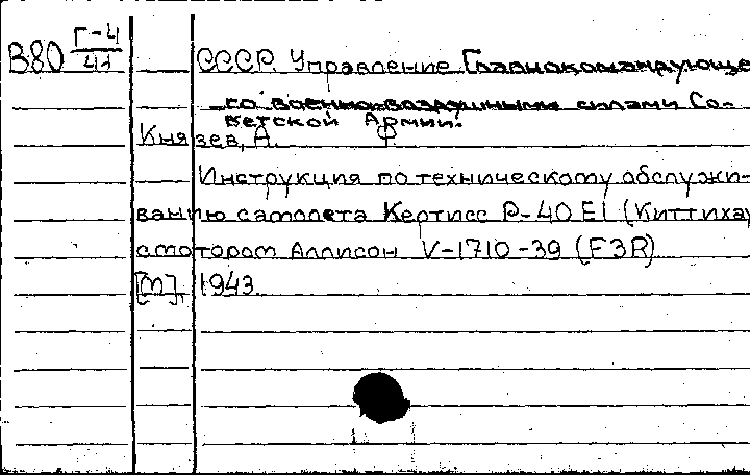 В80 Г-4/41
СССР. Управление Главнокомандующе
го военно-воздушными силами Со-
ветской Армии.
Князев, А. Ф
Инструкция по техническому обслужи-
ванию самолета Кертисс Р-40 Е1 (Киттихау
с мотором Аллисон V-1710-39 (F3R)
[М], 1943